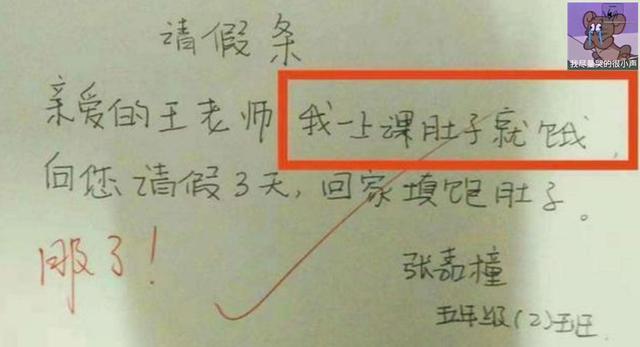 请假条
我尽量哭的很小声
亲爱的王老师我一上课肚子就饿,
向您请假3天,回家填饱肚子。
服了!
张嘉橦
五年级(2)班